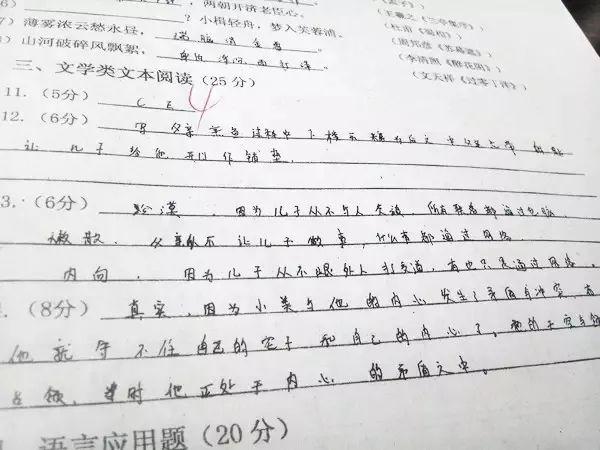 ，两朝开济老臣心。
？小楫轻舟，梦入芙蓉浦。
(王羲之《兰亭集序》)
(杜甫《蜀相》)
7) 薄雾浓云愁永昼，瑞脑消金兽。
(周邦彦《苏幕遮》)
) 山河破碎风飘絮，身世浮沉雨打萍。
(李清照《醉花阴》)
(文天祥《过零丁洋》)
三、文学类文本阅读(25分)
11. (5分) C E 4
12. (6分) 写父亲
让儿子给他
3. (6分) 冷漠，因为儿子从不与人交谈，所有联系都通过电脑，
懒散，父亲从不让儿子做事，什么都通过网络。
内向，因为儿子从不跟外人打交道，有也只是通过网络。
(8分) 真实，因为小美与他的内心发生了矛盾与冲突，
他就守不住自己的空子和自己的内心了。
占领，当时他正处于内心的矛盾之中。
语言应用题(20分)